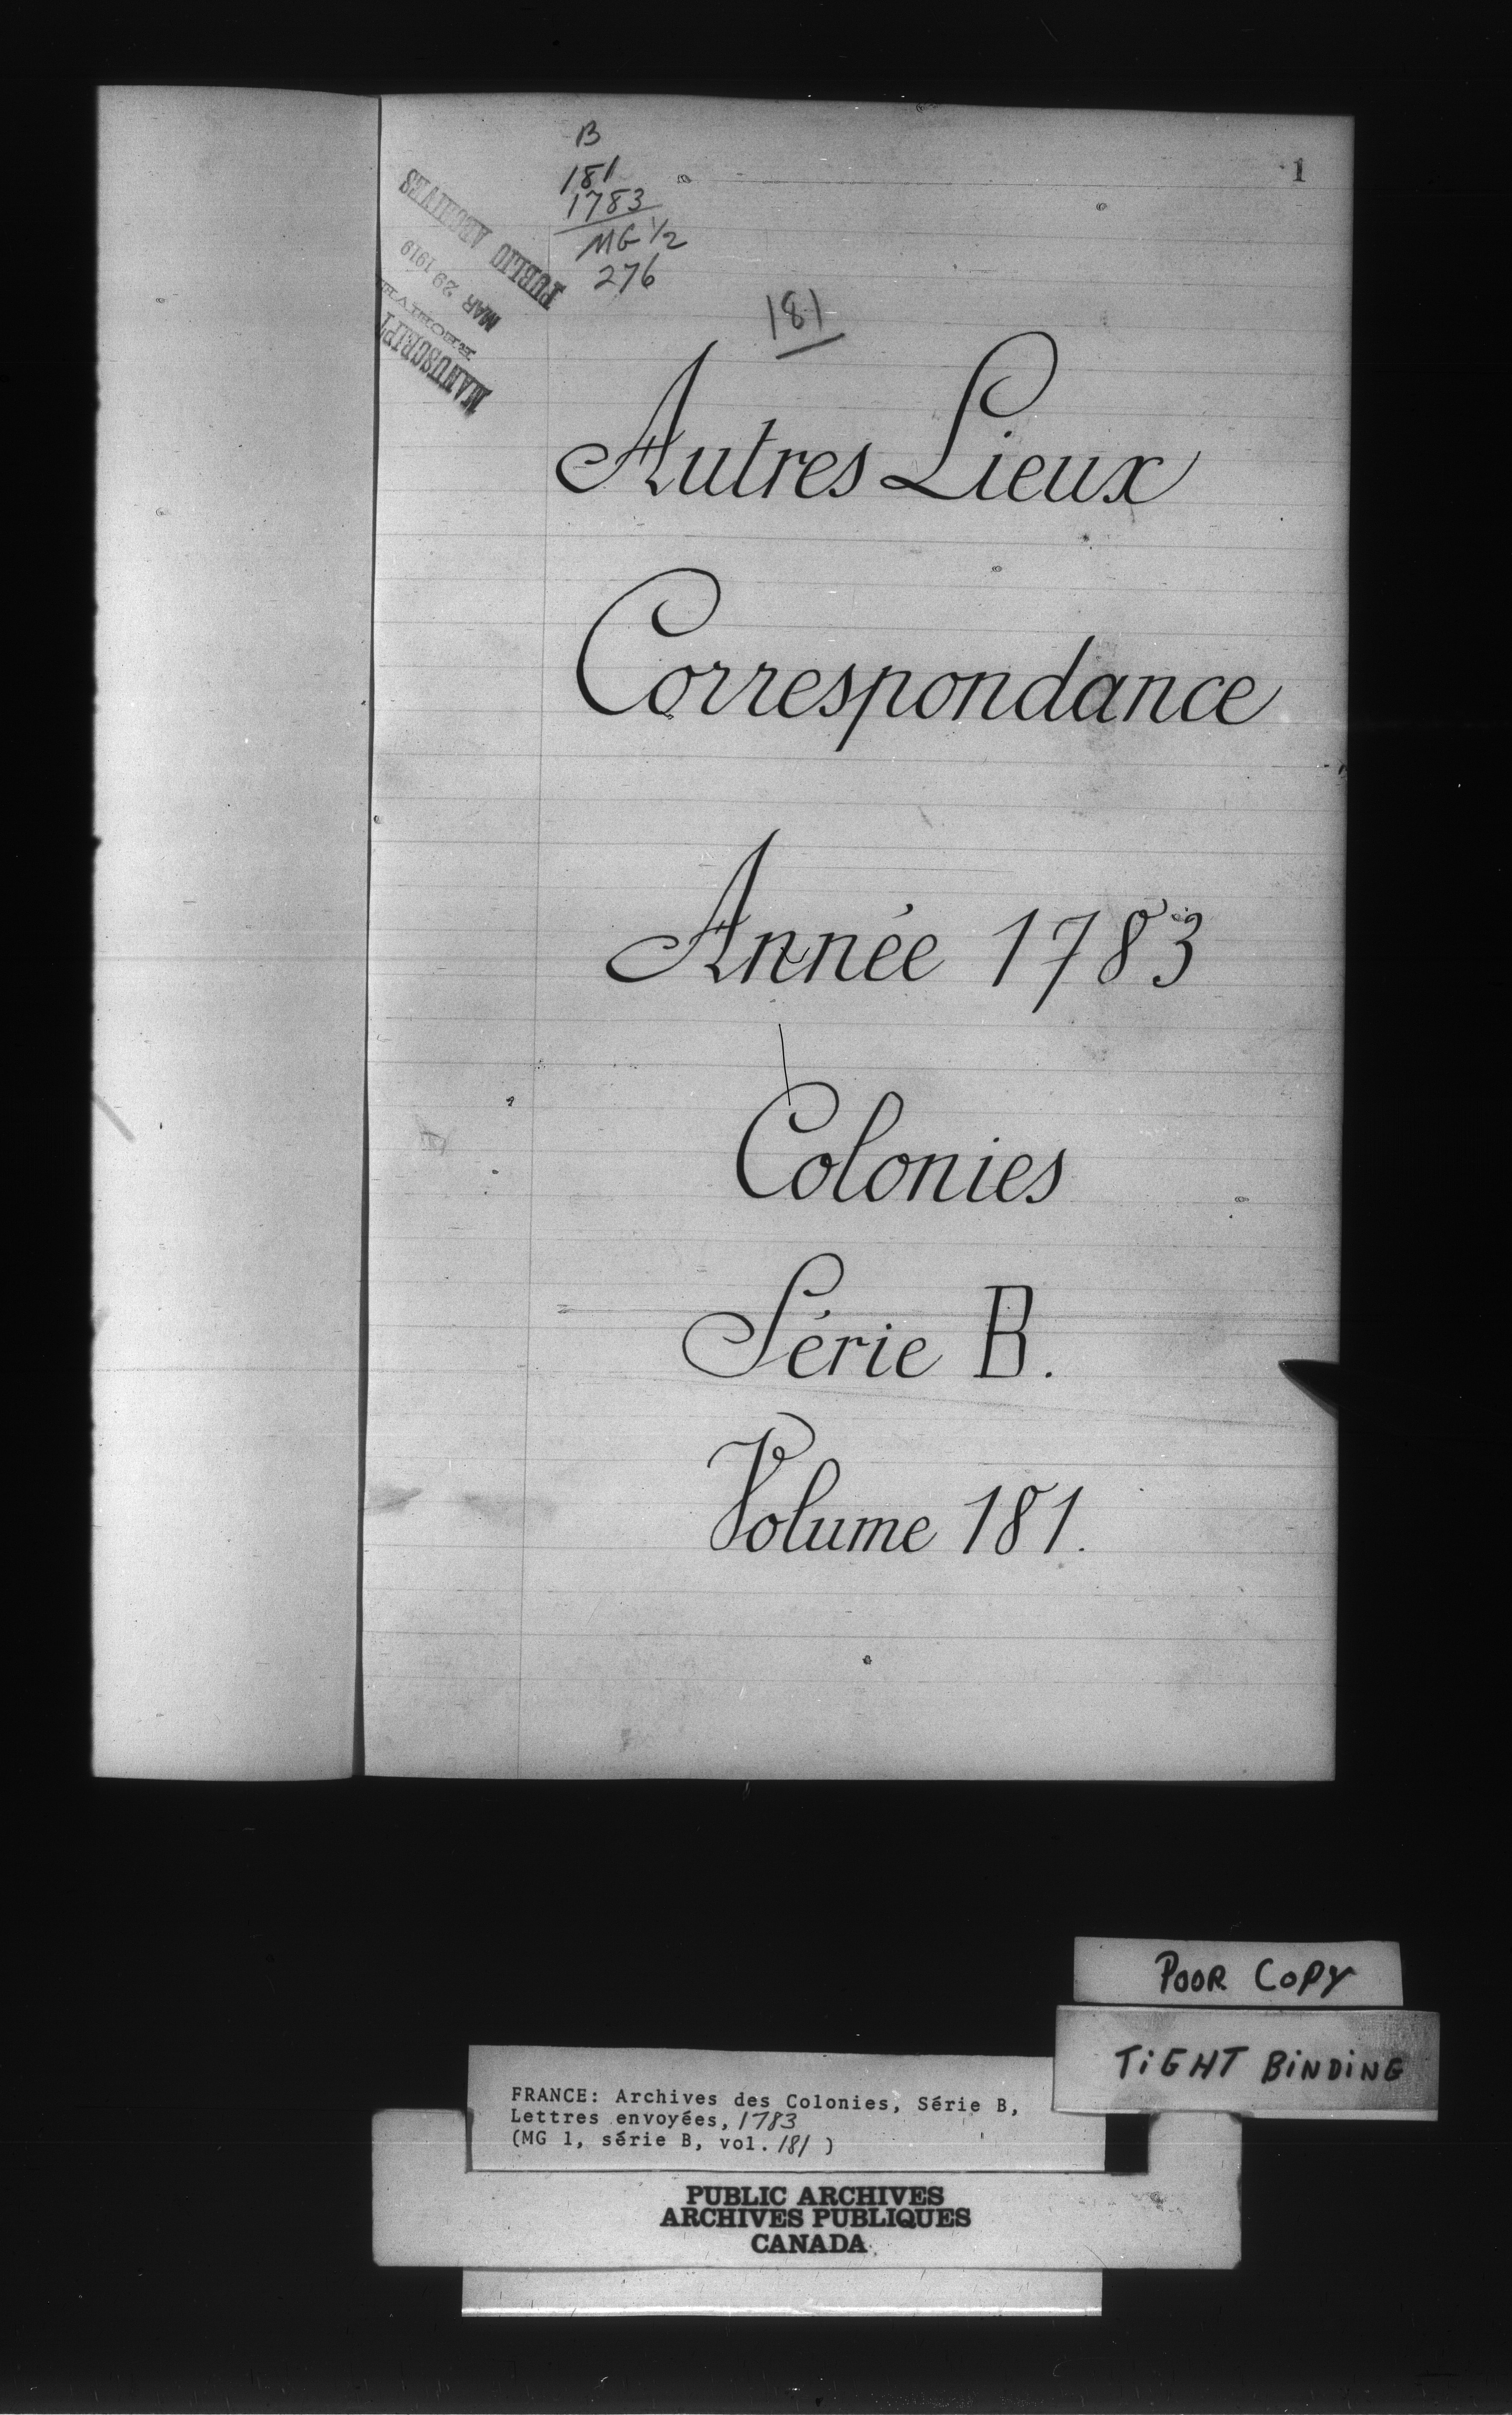 B
181
1783
MG 1/2
276
1
PUBLIC ARCHIVES
MAR 29 1919
MANUSCRIPT
181
Autres Lieux
Correspondance
Année 1783
Colonies
Série B.
Volume 181.
POOR COPY
TIGHT BINDING
FRANCE: Archives des Colonies, Série B,
Lettres envoyées, 1783
(MG 1, série B, vol. 181 )
PUBLIC ARCHIVES
ARCHIVES PUBLIQUES
CANADA